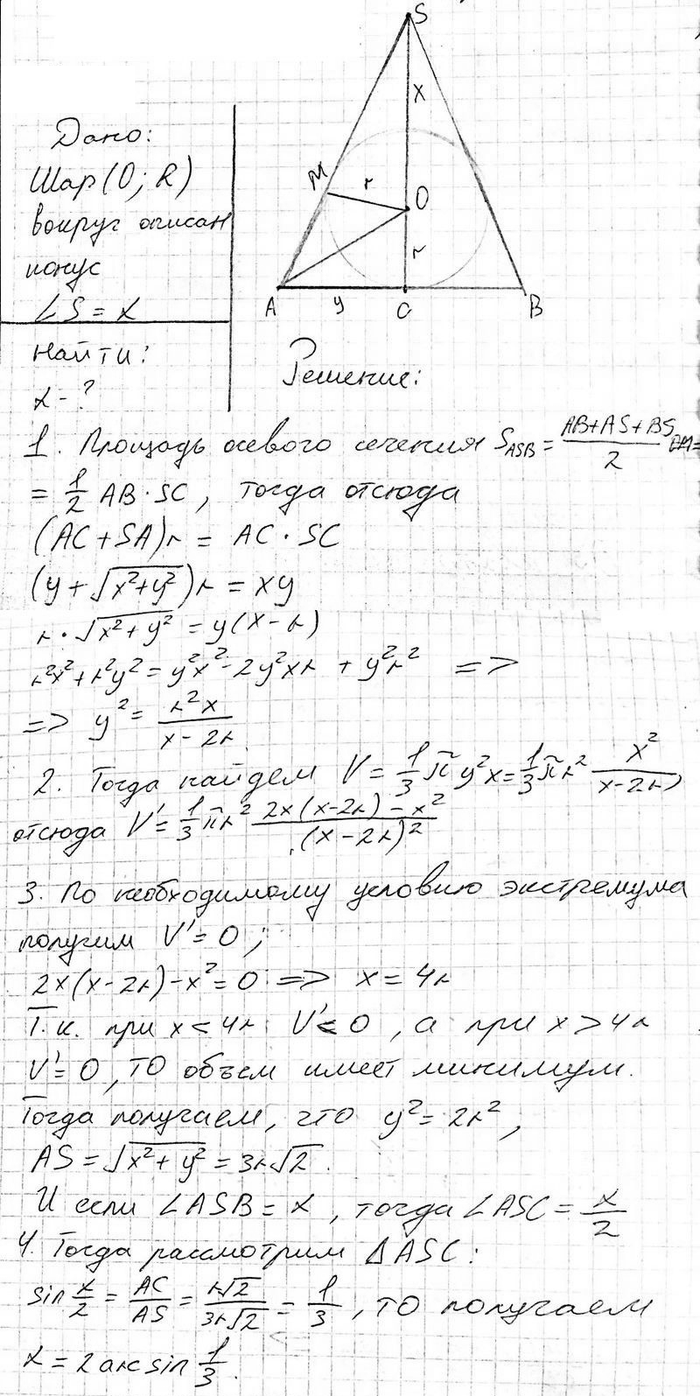 S
x
M
r
O
r
A
y
C
B
Дано:
Шар (O; R)
вокруг описан
конус
∠S = α
Найти:
α - ?
Решение:
1. Площадь осевого сечения S_ASB = (AB+AS+BS)/2
= 1/2 AB · SC, тогда отсюда
(AC + SA)r = AC · SC
(y + √(x²+y²))r = xy
r · √(x²+y²) = y(x-r)
r²x² + r²y² = y²x² - 2y²xr + y²r² =>
=> y² = r²x/(x-2r)
2. Тогда найдем V = 1/3 πy²x = 1/3 πr² x²/(x-2r),
отсюда V' = 1/3 πr² (2x(x-2r) - x²)/(x-2r)²
3. По необходимому условию экстремума
получим V' = 0;
2x(x-2r) - x² = 0 => x = 4r
Т.к. при x < 4r V' < 0, а при x > 4r
V' = 0, то объем имеет минимум.
Тогда получаем, что y² = 2r²,
AS = √(x²+y²) = 3r√2.
И если ∠ASB = α, тогда ∠ASC = α/2
4. Тогда рассмотрим ΔASC:
sin α/2 = AC/AS = r√2/3r√2 = 1/3, то получаем
α = 2 arcsin 1/3.